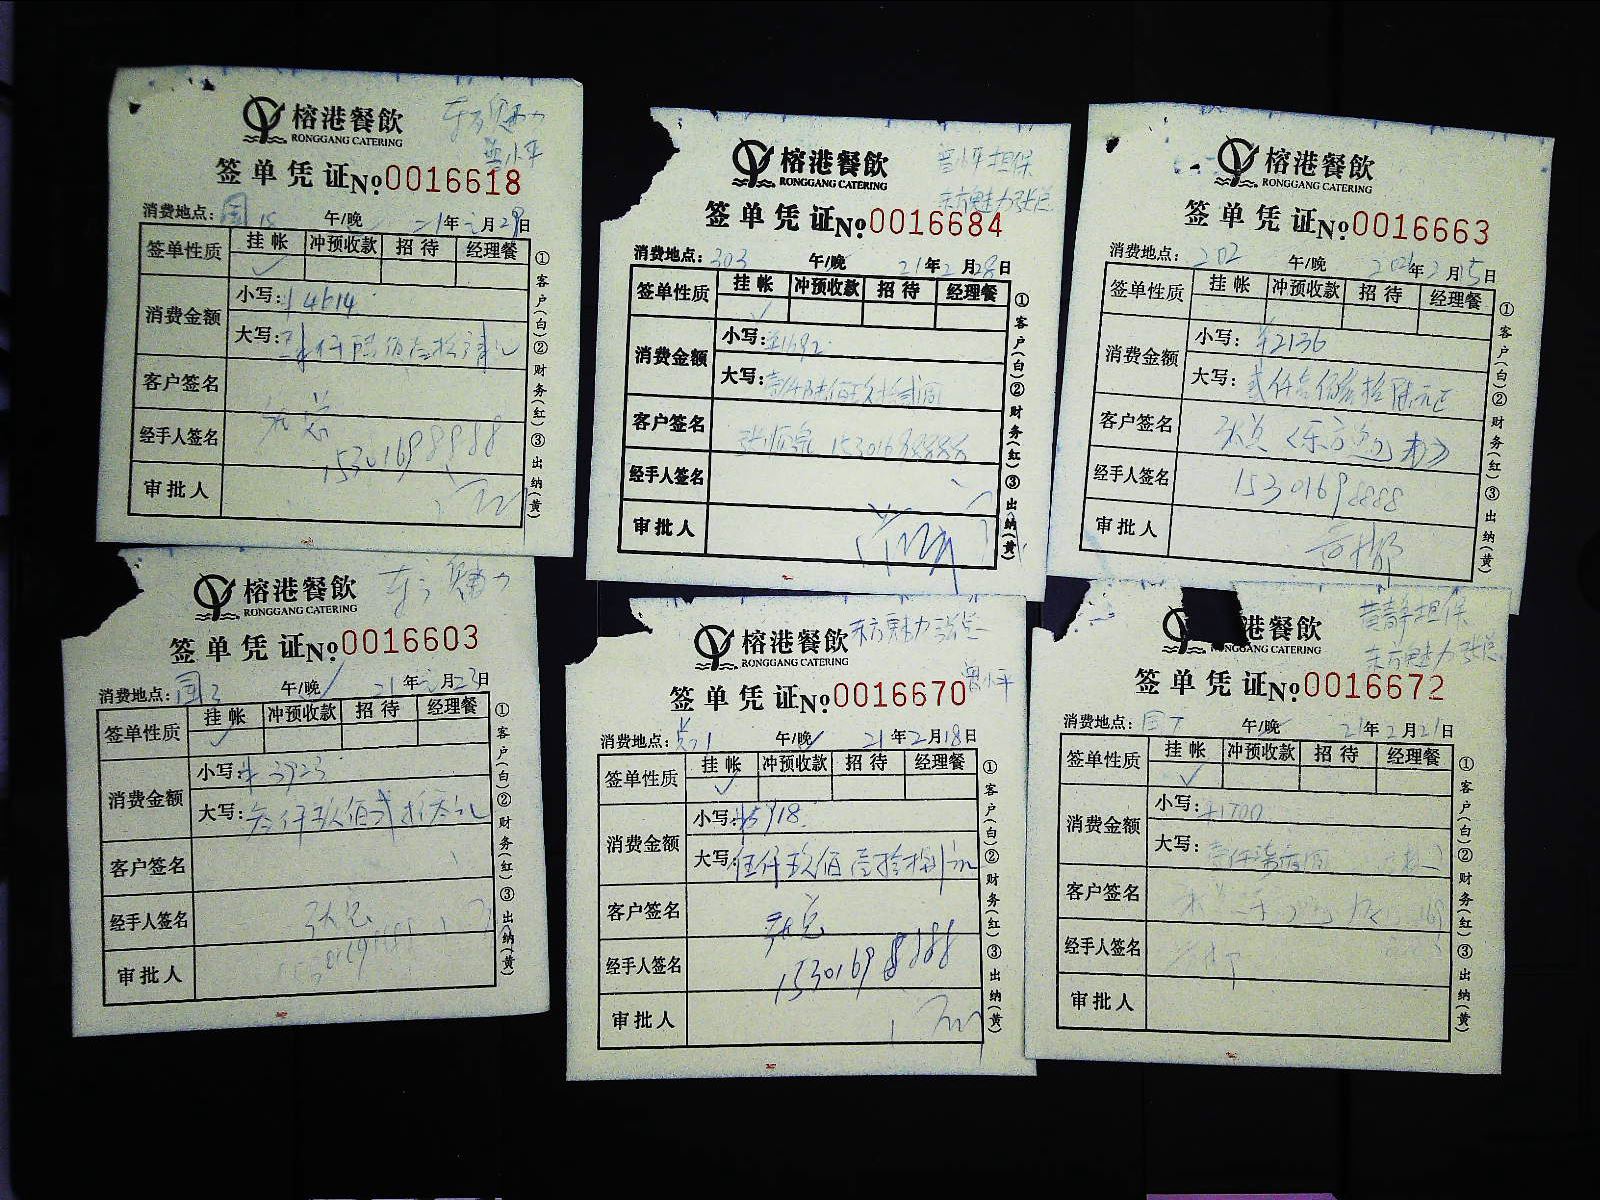 榕港餐飲
RONGGANG CATERING
曾小平
签单凭证No.0016618
消费地点: 午/晚 21年 月29日
签单性质 挂帐 冲预收款 招待 经理餐
消费金额 小写: ¥4614
大写: 肆仟陆佰壹拾肆元
客户签名
经手人签名 15301698888
审批人
①客户(白)②财务(红)③出纳(黄)
榕港餐飲
RONGGANG CATERING
曾小平担保
东方魅力张总
签单凭证No.0016684
消费地点: 303 午/晚 21年2月28日
签单性质 挂帐 冲预收款 招待 经理餐
消费金额 小写: ¥1692
大写: 壹仟陆佰玖拾贰圆
客户签名 15301698888
经手人签名
审批人
①客户(白)②财务(红)③出纳(黄)
榕港餐飲
RONGGANG CATERING
签单凭证No.0016663
消费地点: 202 午/晚 2021年2月15日
签单性质 挂帐 冲预收款 招待 经理餐
消费金额 小写: ¥2136
大写: 贰仟壹佰叁拾陆元正
客户签名 张总〈东方魅力〉
经手人签名 15301698888
审批人
①客户(白)②财务(红)③出纳(黄)
榕港餐飲
RONGGANG CATERING
东方魅力
签单凭证No.0016603
消费地点: 午/晚 21年 月22日
签单性质 挂帐 冲预收款 招待 经理餐
消费金额 小写: ¥3923
大写: 叁仟玖佰贰拾叁元
客户签名
经手人签名 张总
审批人
①客户(白)②财务(红)③出纳(黄)
榕港餐飲
RONGGANG CATERING
东方魅力张总
曾小平
签单凭证No.0016670
消费地点: 午/晚 21年2月18日
签单性质 挂帐 冲预收款 招待 经理餐
消费金额 小写: ¥5918
大写: 伍仟玖佰壹拾捌元
客户签名 张总
经手人签名 15301698888
审批人
①客户(白)②财务(红)③出纳(黄)
港餐飲
RONGGANG CATERING
黄静担保
东方魅力张总
签单凭证No.0016672
消费地点: 午/晚 21年2月21日
签单性质 挂帐 冲预收款 招待 经理餐
消费金额 小写: ¥1700
大写: 壹仟柒佰圆
客户签名
经手人签名
审批人
①客户(白)②财务(红)③出纳(黄)